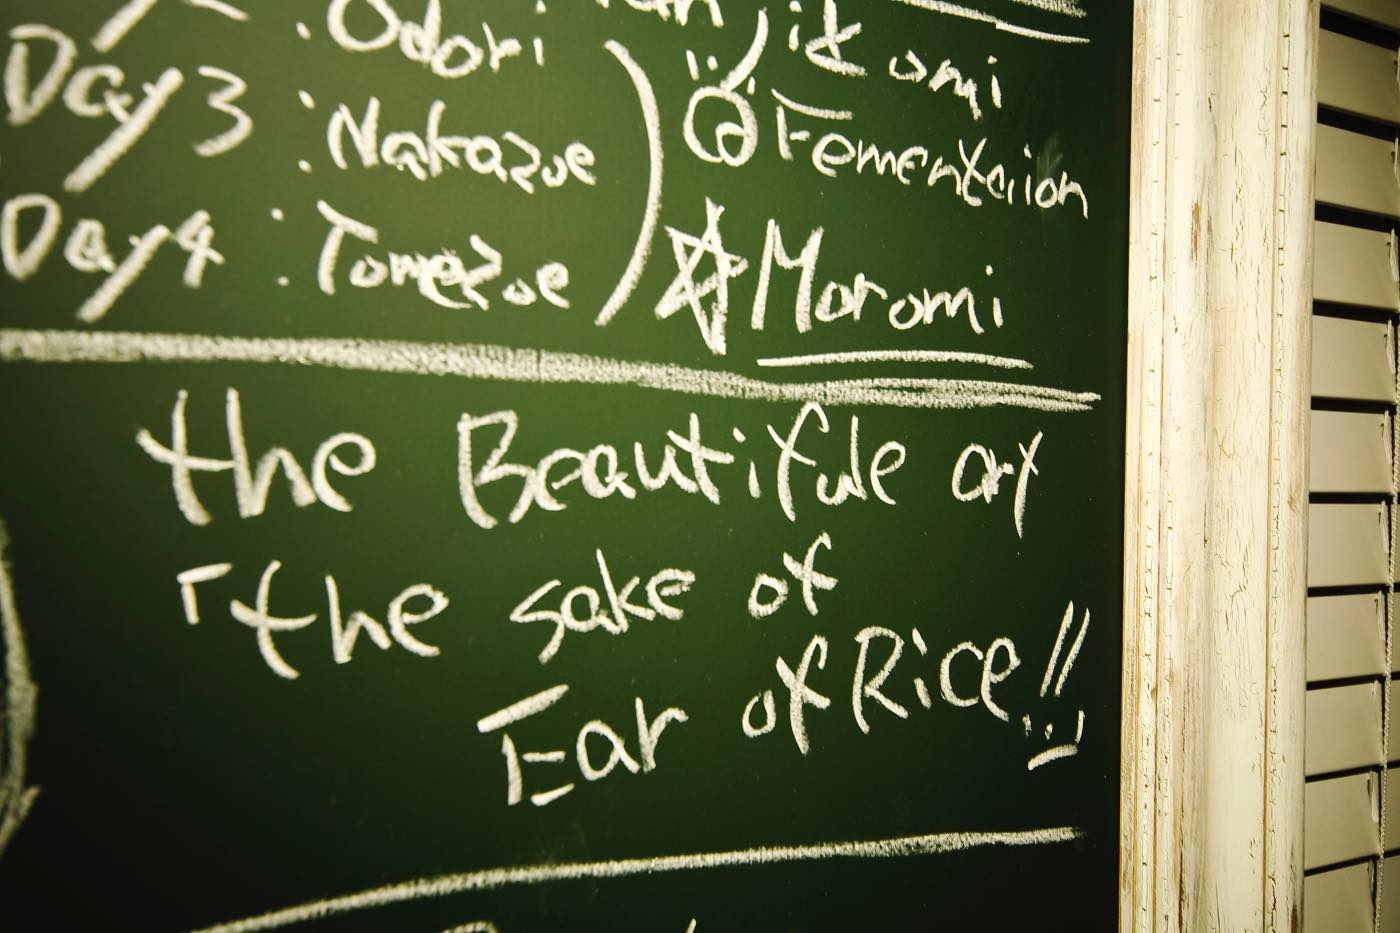 : Odori
Day 3 : Nakazoe
Day 4 : Tomezoe
jikomi
@ Fementaiion
☆ Moromi
the Beautifule art
「the sake of
Ear of Rice!!